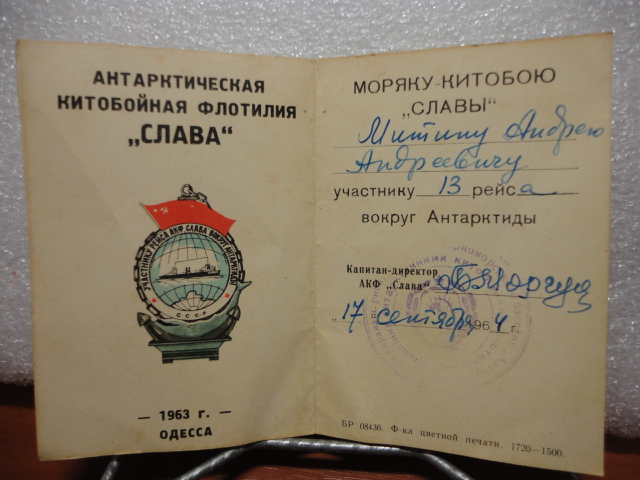 АНТАРКТИЧЕСКАЯ
КИТОБОЙНАЯ ФЛОТИЛИЯ
„СЛАВА“
УЧАСТНИКУ РЕЙСА АКФ СЛАВА ВОКРУГ АНТАРКТИДЫ
СССР
— 1963 г. —
ОДЕССА
МОРЯКУ-КИТОБОЮ
„СЛАВЫ“
Митину Андрею
Андреевичу
участнику 13 рейса
вокруг Антарктиды
Капитан-директор
АКФ „Слава“
„17 сентября 1964 г.
БР 08436. Ф-ка цветной печати. 1720—1500.